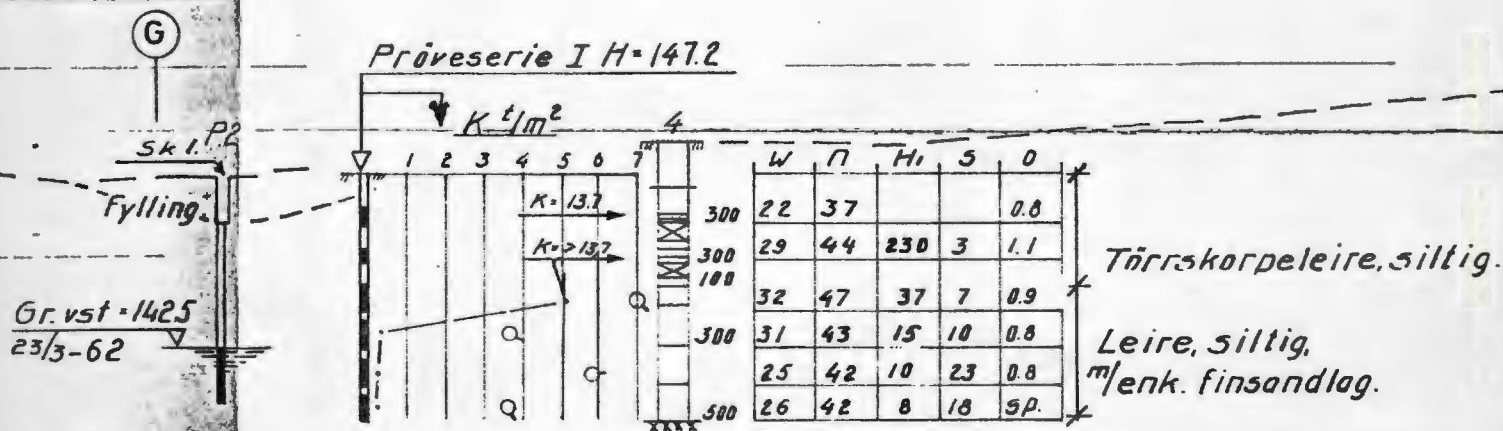 G
Pröveserie I H=147.2
K t/m²
P2
Sk 1.
Fylling
Gr.vst=142.5
23/3-62
1 2 3 4 5 6 7
K= 13.7
K=>13.7
4
300
300
100
300
500
W n H₁ S O
22 37 0.8
29 44 230 3 1.1
32 47 37 7 0.9
31 43 15 10 0.8
25 42 10 23 0.8
26 42 8 18 sp.
Törrskorpeleire, siltig.
Leire, siltig,
m/enk. finsandlag.